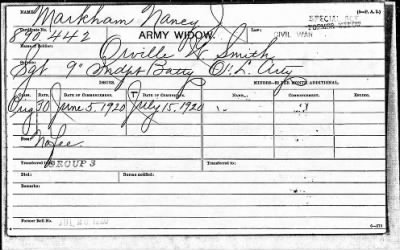 NAME Markham Nancy (3-P. A. L.)
Certificate No.
890.442 ARMY WIDOW. Law: CIVIL WAR SPECIAL ACT
Name of Soldier: Orville W. Smith
Service: Sgt 9" Indpt Batty O. L. Arty
ISSUE. MINORS—$2 PER MONTH ADDITIONAL.
CLASS. RATE. DATE OF COMMENCEMENT. DATE OF CERTIFICATE. COMMENCING. ENDING.
Orig 30 June 5, 1920 July 15, 1920
Fees: No Fee
Transferred from GROUP 3 Transferred to:
Died: Bureau notified:
Remarks:
Former Roll No.
6-271